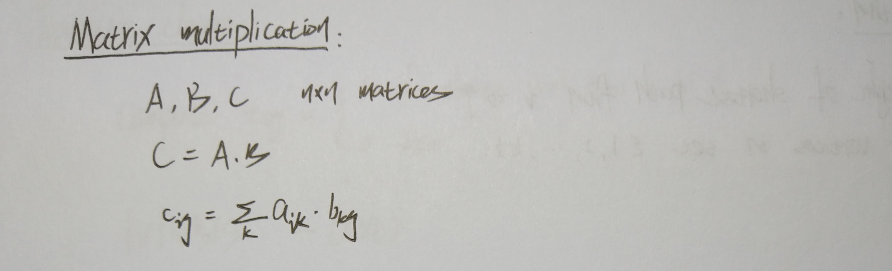 Matrix multiplication:
A, B, C n×n matrices
C = A.B
c_ij = Σ_k a_ik · b_kj